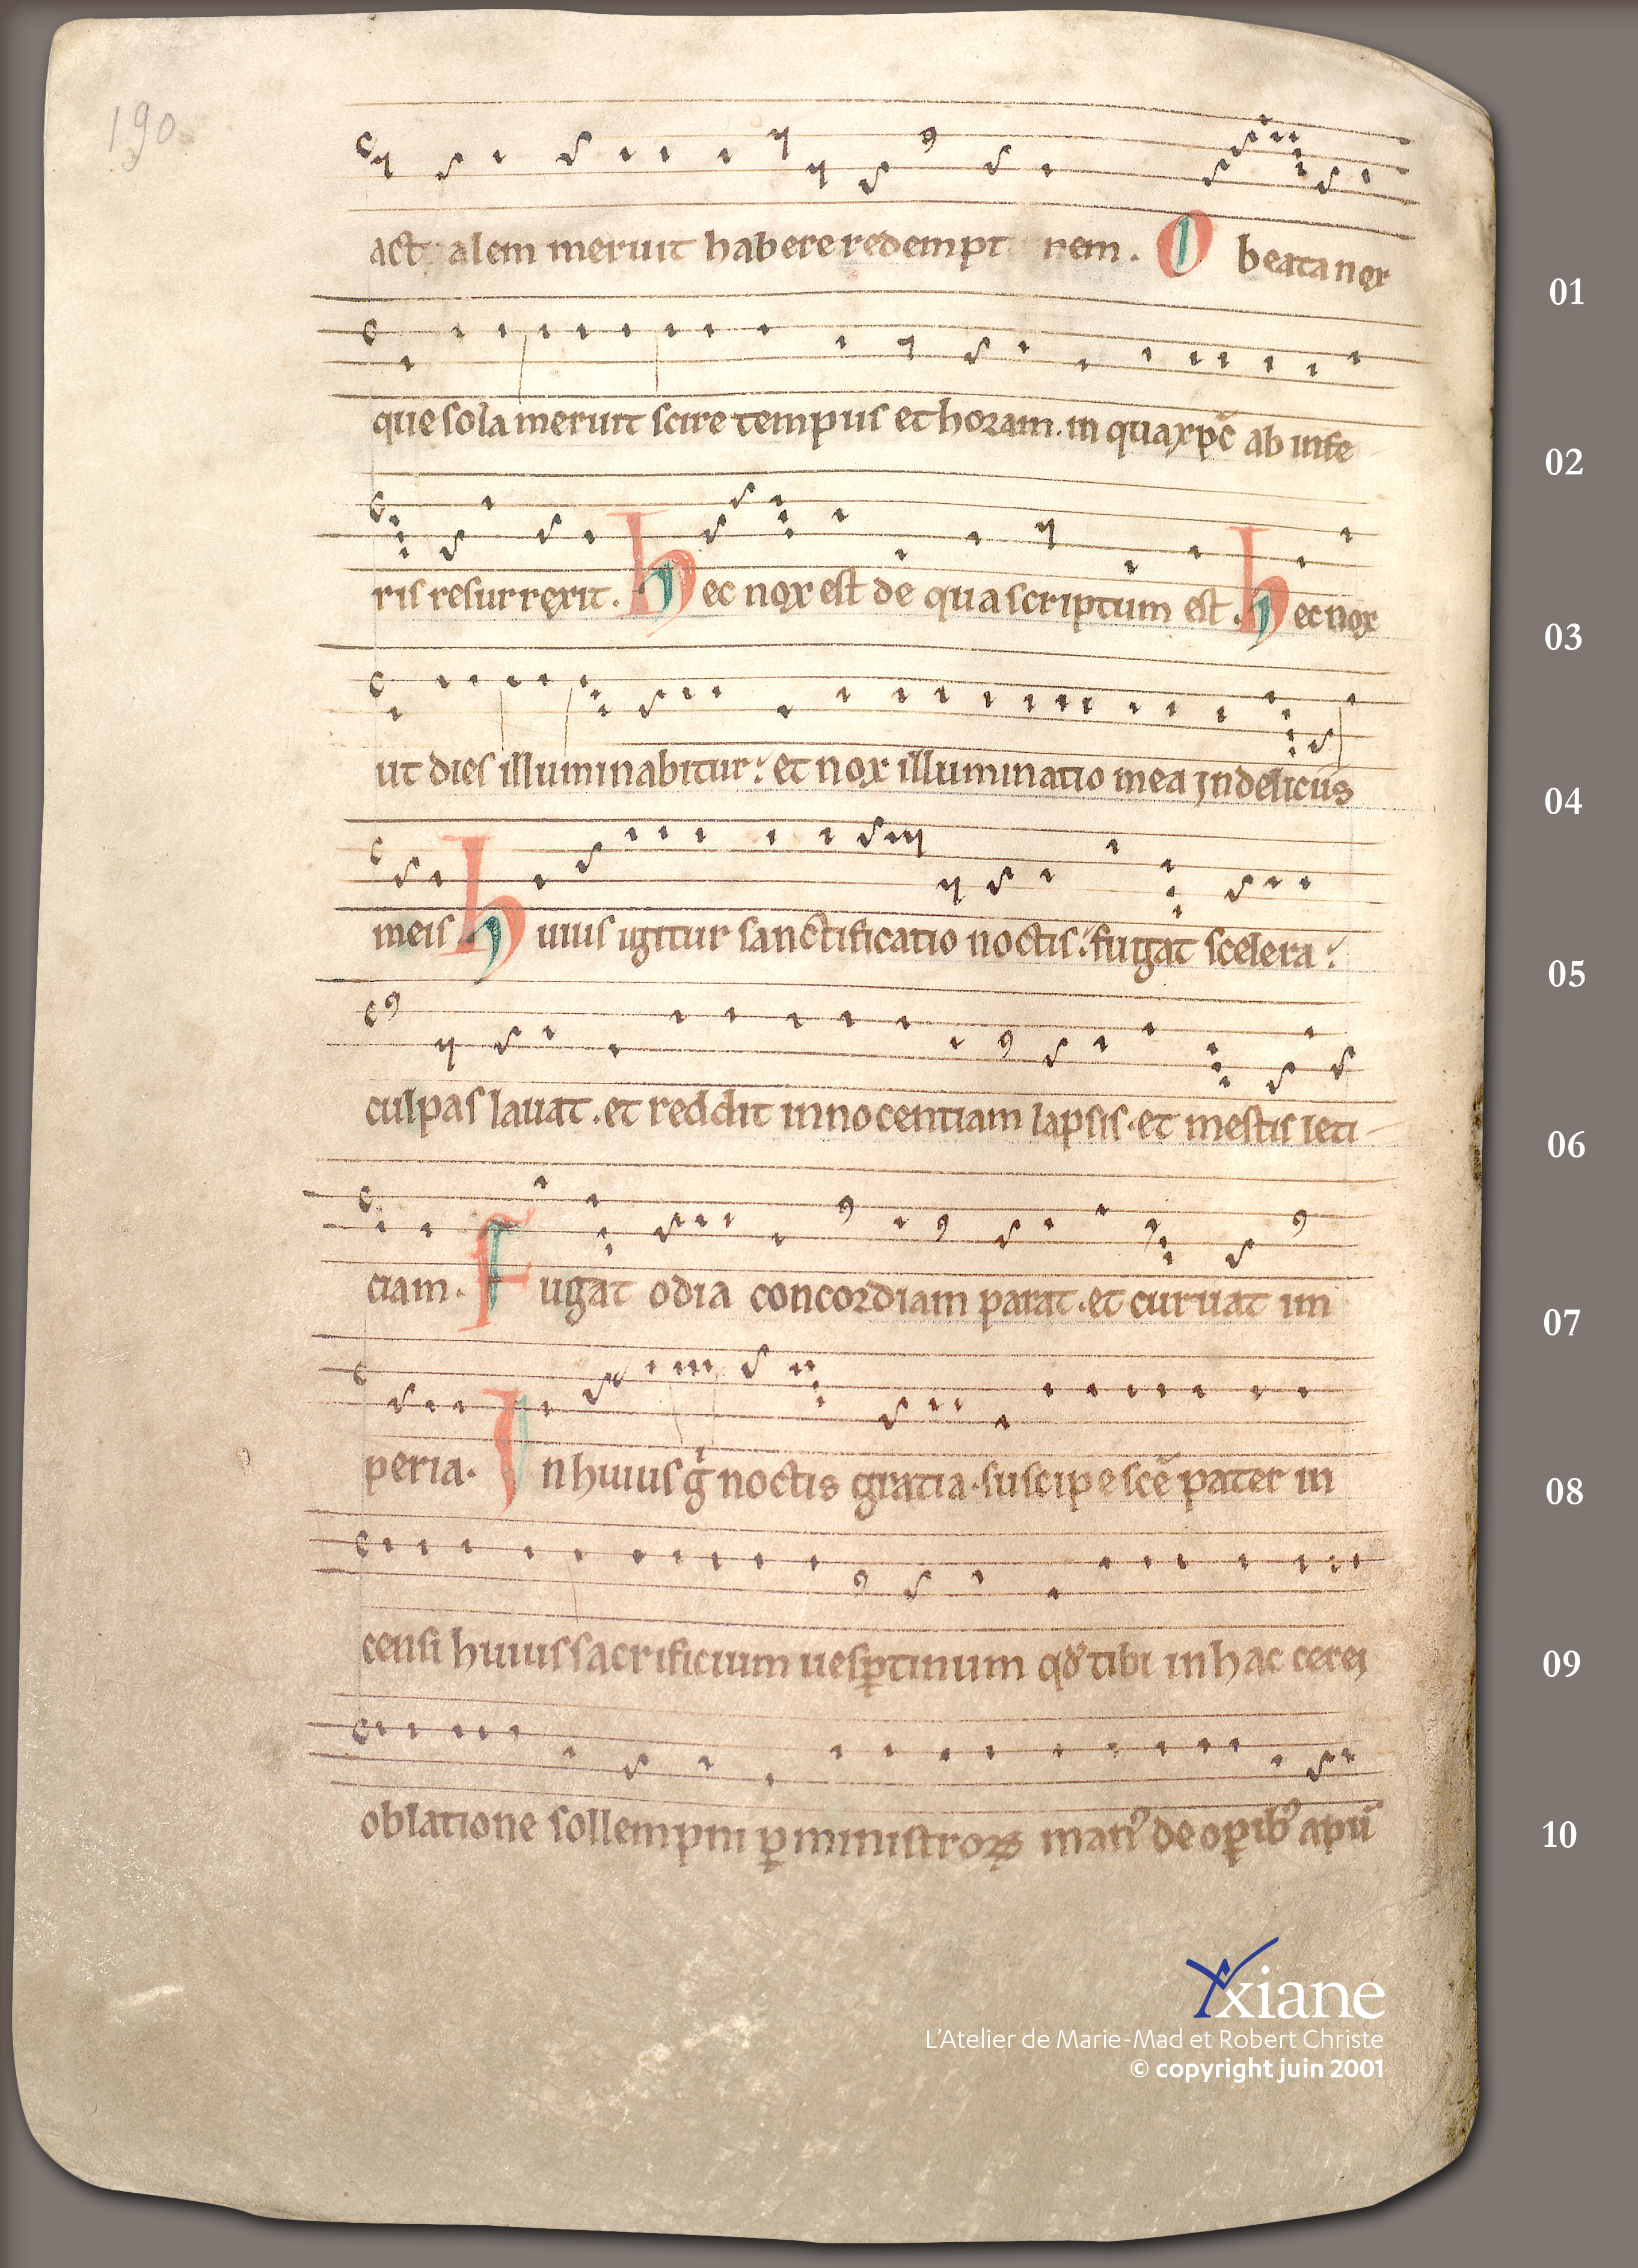 190
act alem meruit habere redempt rem. O beata nox
01
que sola meruit scire tempus et horam. in qua xp̄c ab infe
02
ris resurrexit. Hec nox est de qua scriptum est. Hec nox
03
ut dies illuminabitur: et nox illuminatio mea in deliciis
04
meis Huius igitur sanctificatio noctis: fugat scelera:
05
culpas lauat. et reddit innocentiam lapsis. et mestis leti
06
ciam. Fugat odia concordiam parat. et curuat im
07
peria. In huius gͥ noctis gratia. suscipe sc̄e pater in
08
censi huius sacrificium uesꝑtinum qđ tibi in hac cerei
09
oblatione sollempni ꝑ ministroꝝ man᾿ de oꝑib᾿ apū
10
Yxiane
L'Atelier de Marie-Mad et Robert Christe
© copyright juin 2001